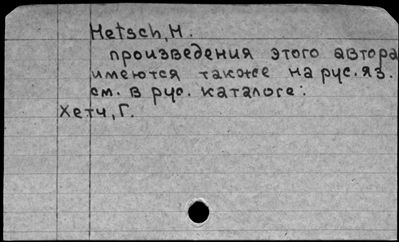 Hetsch, H.
произведения этого автора
имеются также на рус. яз.
см. в рус. каталоге:
Хетч, Г.